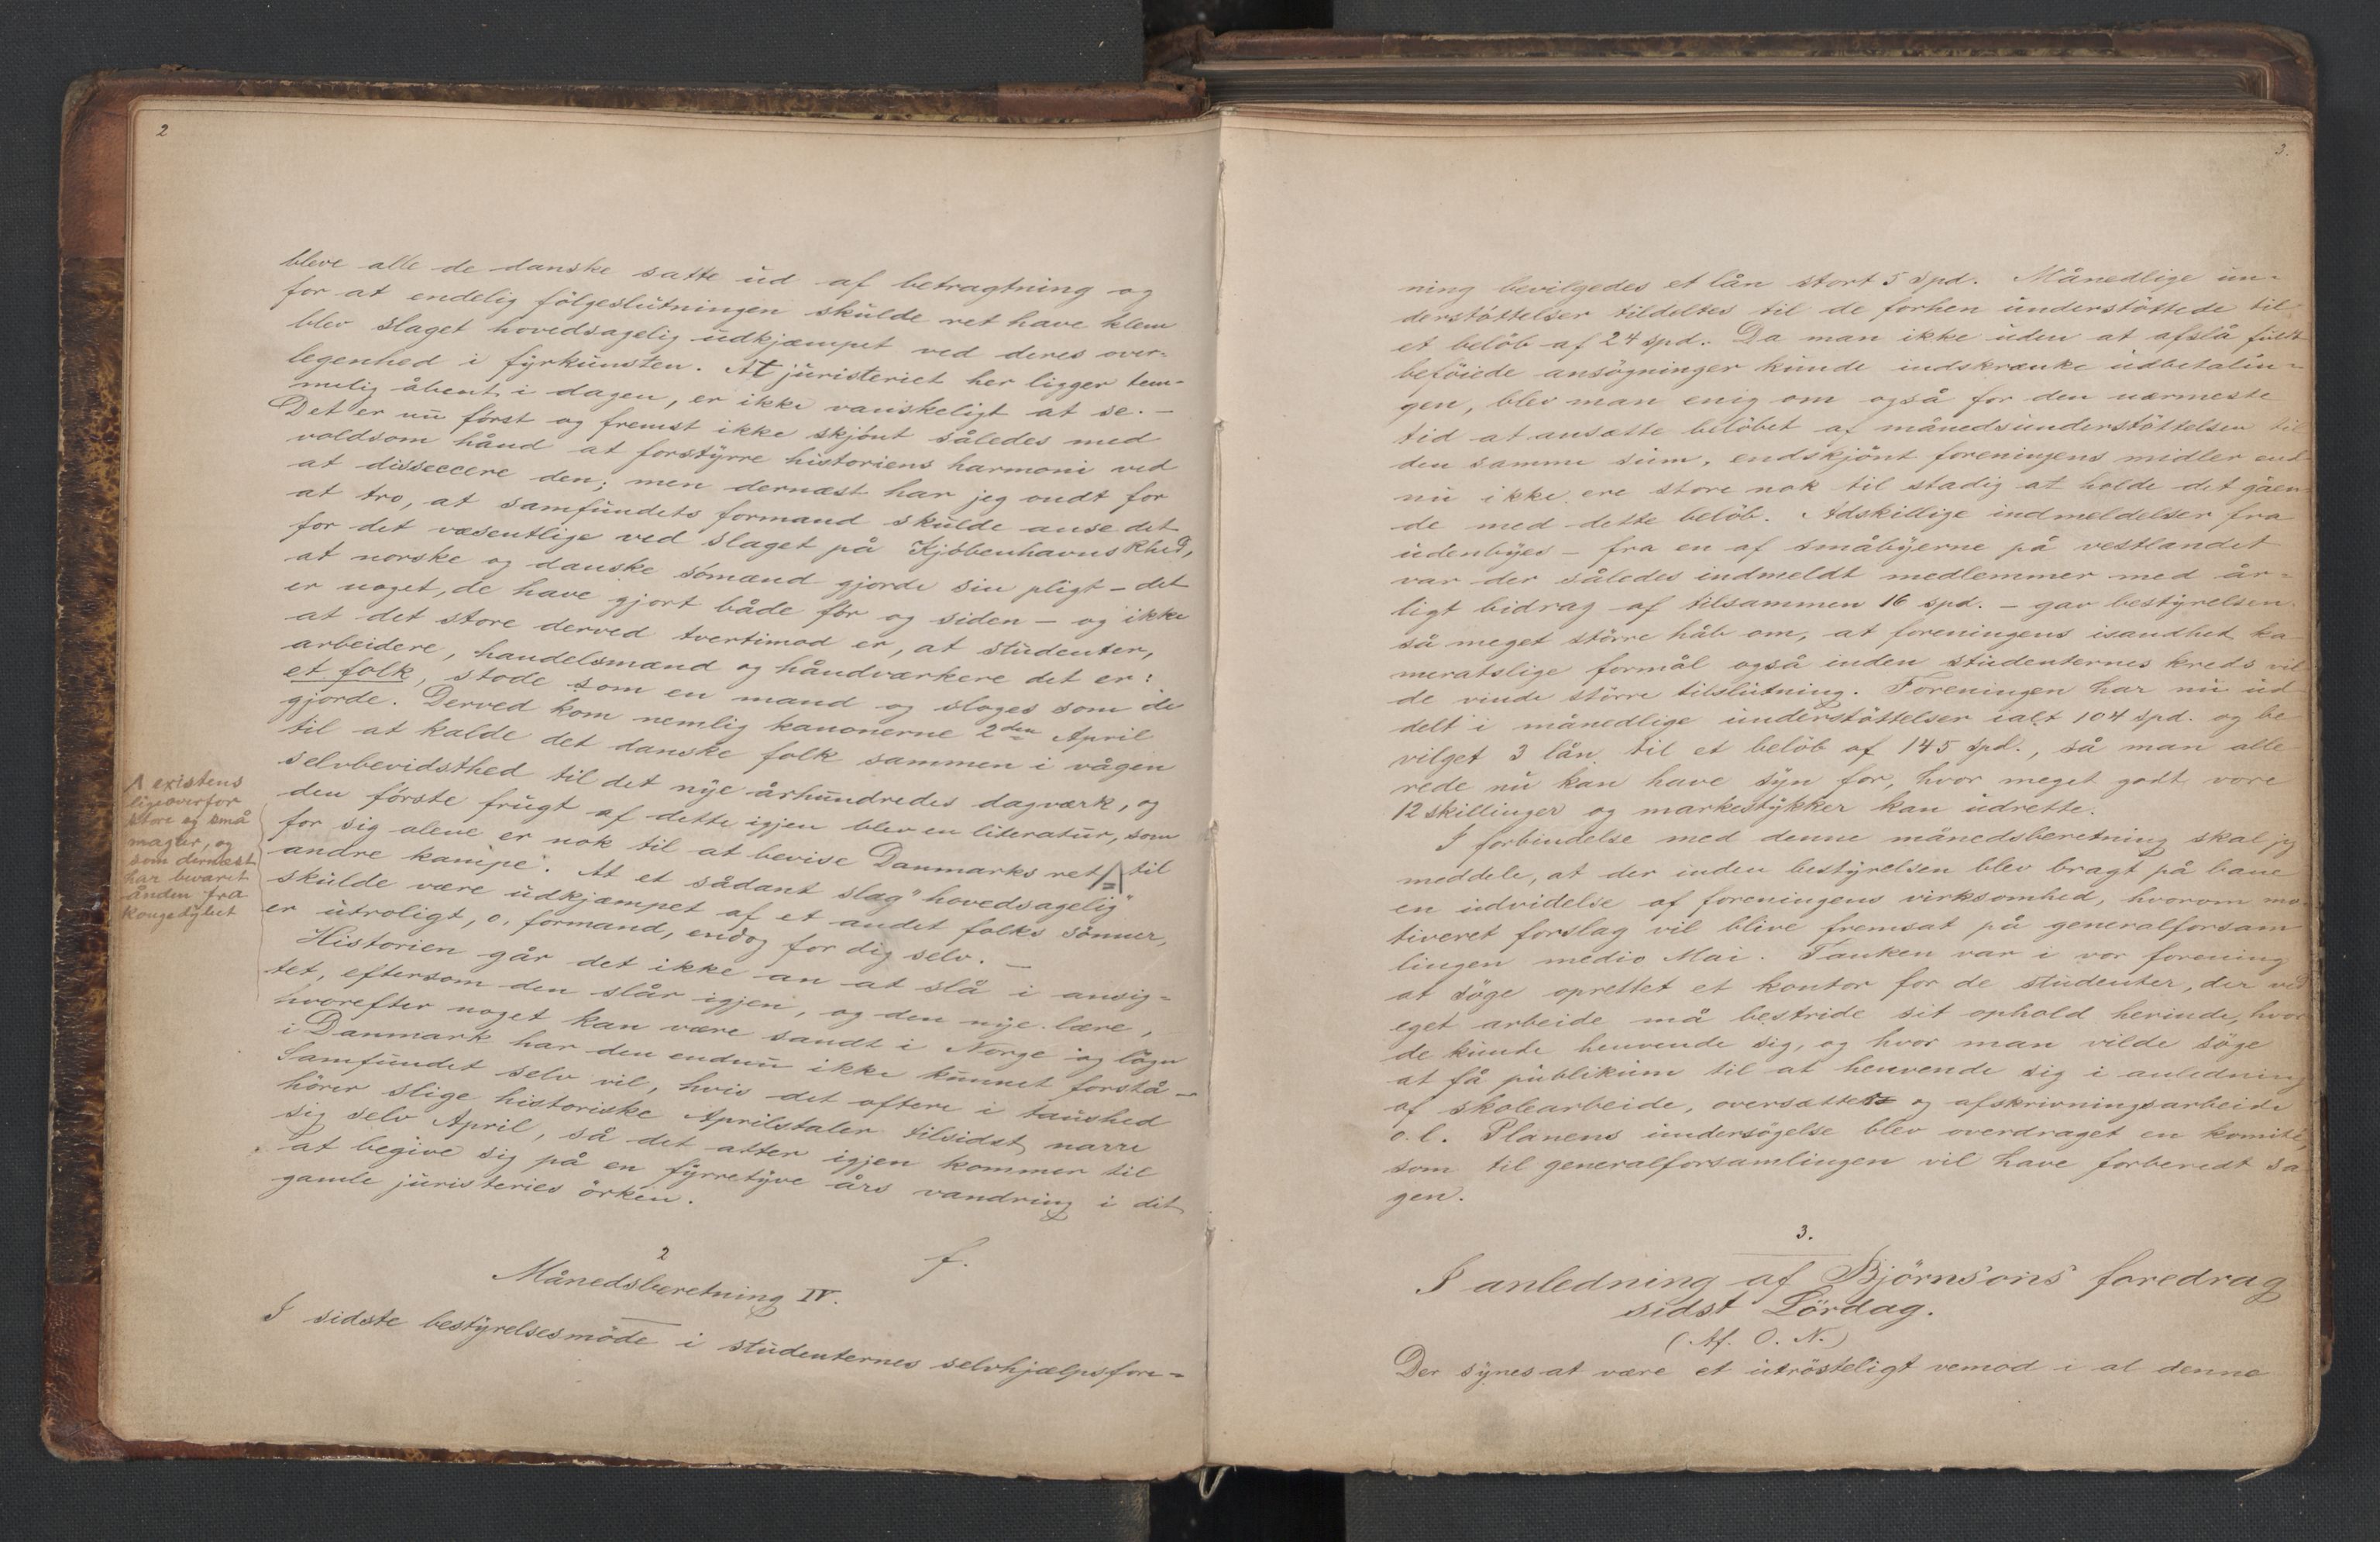 2
bleve alle de danske satte ud af betragtning og
for at endelig fölgeslutningen skulde ret have klem
blev slaget hovedsagelig udkjæmpet ved deres over-
legenhed i fyrkunsten. At juristeriet her ligger tem-
melig åbent i dagen, er ikke vanskeligt at se. –
Det er nu först og fremst ikke skjönt således med
voldsom hånd at forstyrre historiens harmoni ved
at disseccere den; men dernæst har jeg ondt for
at tro, at samfundets formand skulde anse det
for det væsentlige ved slaget på Kjöbenhavns Rhed,
at norske og danske sömænd gjorde sin pligt – det
er noget, de have gjort både för og siden – og ikke
at det store derved tvertimod er, at studenter,
arbeidere, handelsmænd og håndværkere det er:
et folk, stode som en mand og sloges som de
gjorde. Derved kom nemlig kanonerne 2den April
til at kalde det danske folk sammen i vågen
selvbevidsthed til det nye århundredes dagværk, og
den förste frugt af dette igjen blev en literatur, som
for sig alene er nok til at bevise Danmarks ret ⋀ til
andre kampe". At et sådant slag "hovedsagelig"
skulde være udkjæmpet af et andet folks sönner,
er utroligt, o. formand, endog for dig selv. –
Historien går det ikke an at slå i ansig-
tet, eftersom den slår igjen, og den nye lære,
hvorefter noget kan være sandt i Norge og lögn
i Danmark har den endnu ikke kunnet forstå –
Samfundet selv vil, hvis det oftere i taushed
hörer slige historiske Aprilstaler tilsidst narre
sig selv April, så det atter igjen kommer til
at begive sig på en fyrretyve års vandring i dit
gamle juristeries örken.
f.
⋀ existens
ligeoverfor
store og små
magter, og
som dernæst
har bevaret
ånden fra
Kongedybet
2
Månedsberetning IV.
I sidste bestyrelsesmöde i studenternes selvhjælpsfore-
3.
ning bevilgedes et lån stort 5 spd. Månedlige un-
derstöttelser tildeltes til de forhen understöttede til
et belöb af 24 spd. Da man ikke uden at afslå fuldt
beföiede ansögninger kunde indskrænke udbetalin-
gen, blev man enig om også for den nærmeste
tid at ansætte belöbet af månedsunderstöttelsen til
den samme sum, endskjönt foreningens midler end
nu ikke ere store nok til stadig at holde det gåen-
de med dette belöb. Adskillige indmeldelser fra
udenbyes – fra en af småbyerne på vestlandet
var der således indmeldt medlemmer med år-
ligt bidrag af tilsammen 16 spd. – gav bestyrelsen
så meget större håb om, at foreningens isandhed ka
meratslige formål også inden studenternes kreds vil
de vinde större tilslutning. Foreningen har nu ud
delt i månedlige understöttelser ialt 104 spd. og be
vilget 3 lån til et belöb af 145 spd., så man alle
rede nu kan have syn for, hvor meget godt vore
12 skillinger og markestykker kan udrette.
I forbindelse med denne månedsberetning skal jeg
meddele, at der inden bestyrelsen blev bragt på bane
en udvidelse af foreningens virksomhed, hvorom mo-
tiveret forslag vil blive fremsat på generalforsam
lingen medio Mai. Tanken var i vor forening
at söge oprettet et kontor for de studenter, der ved
eget arbeide må bestride sit ophold herinde, hvor
de kunde henvende sig, og hvor man vilde söge
at få publikum til at henvende sig i anledning
af skolearbeide, oversættel og afskrivningsarbeide
o. l. Planens undersögelse blev overdraget en komité,
som til generalforsamlingen vil have forberedt sa
gen.
3.
I anledning af Björnsons foredrag
sidst Lördag.
(Af. O. N.)
Der synes at være et utrösteligt vemod i al denne